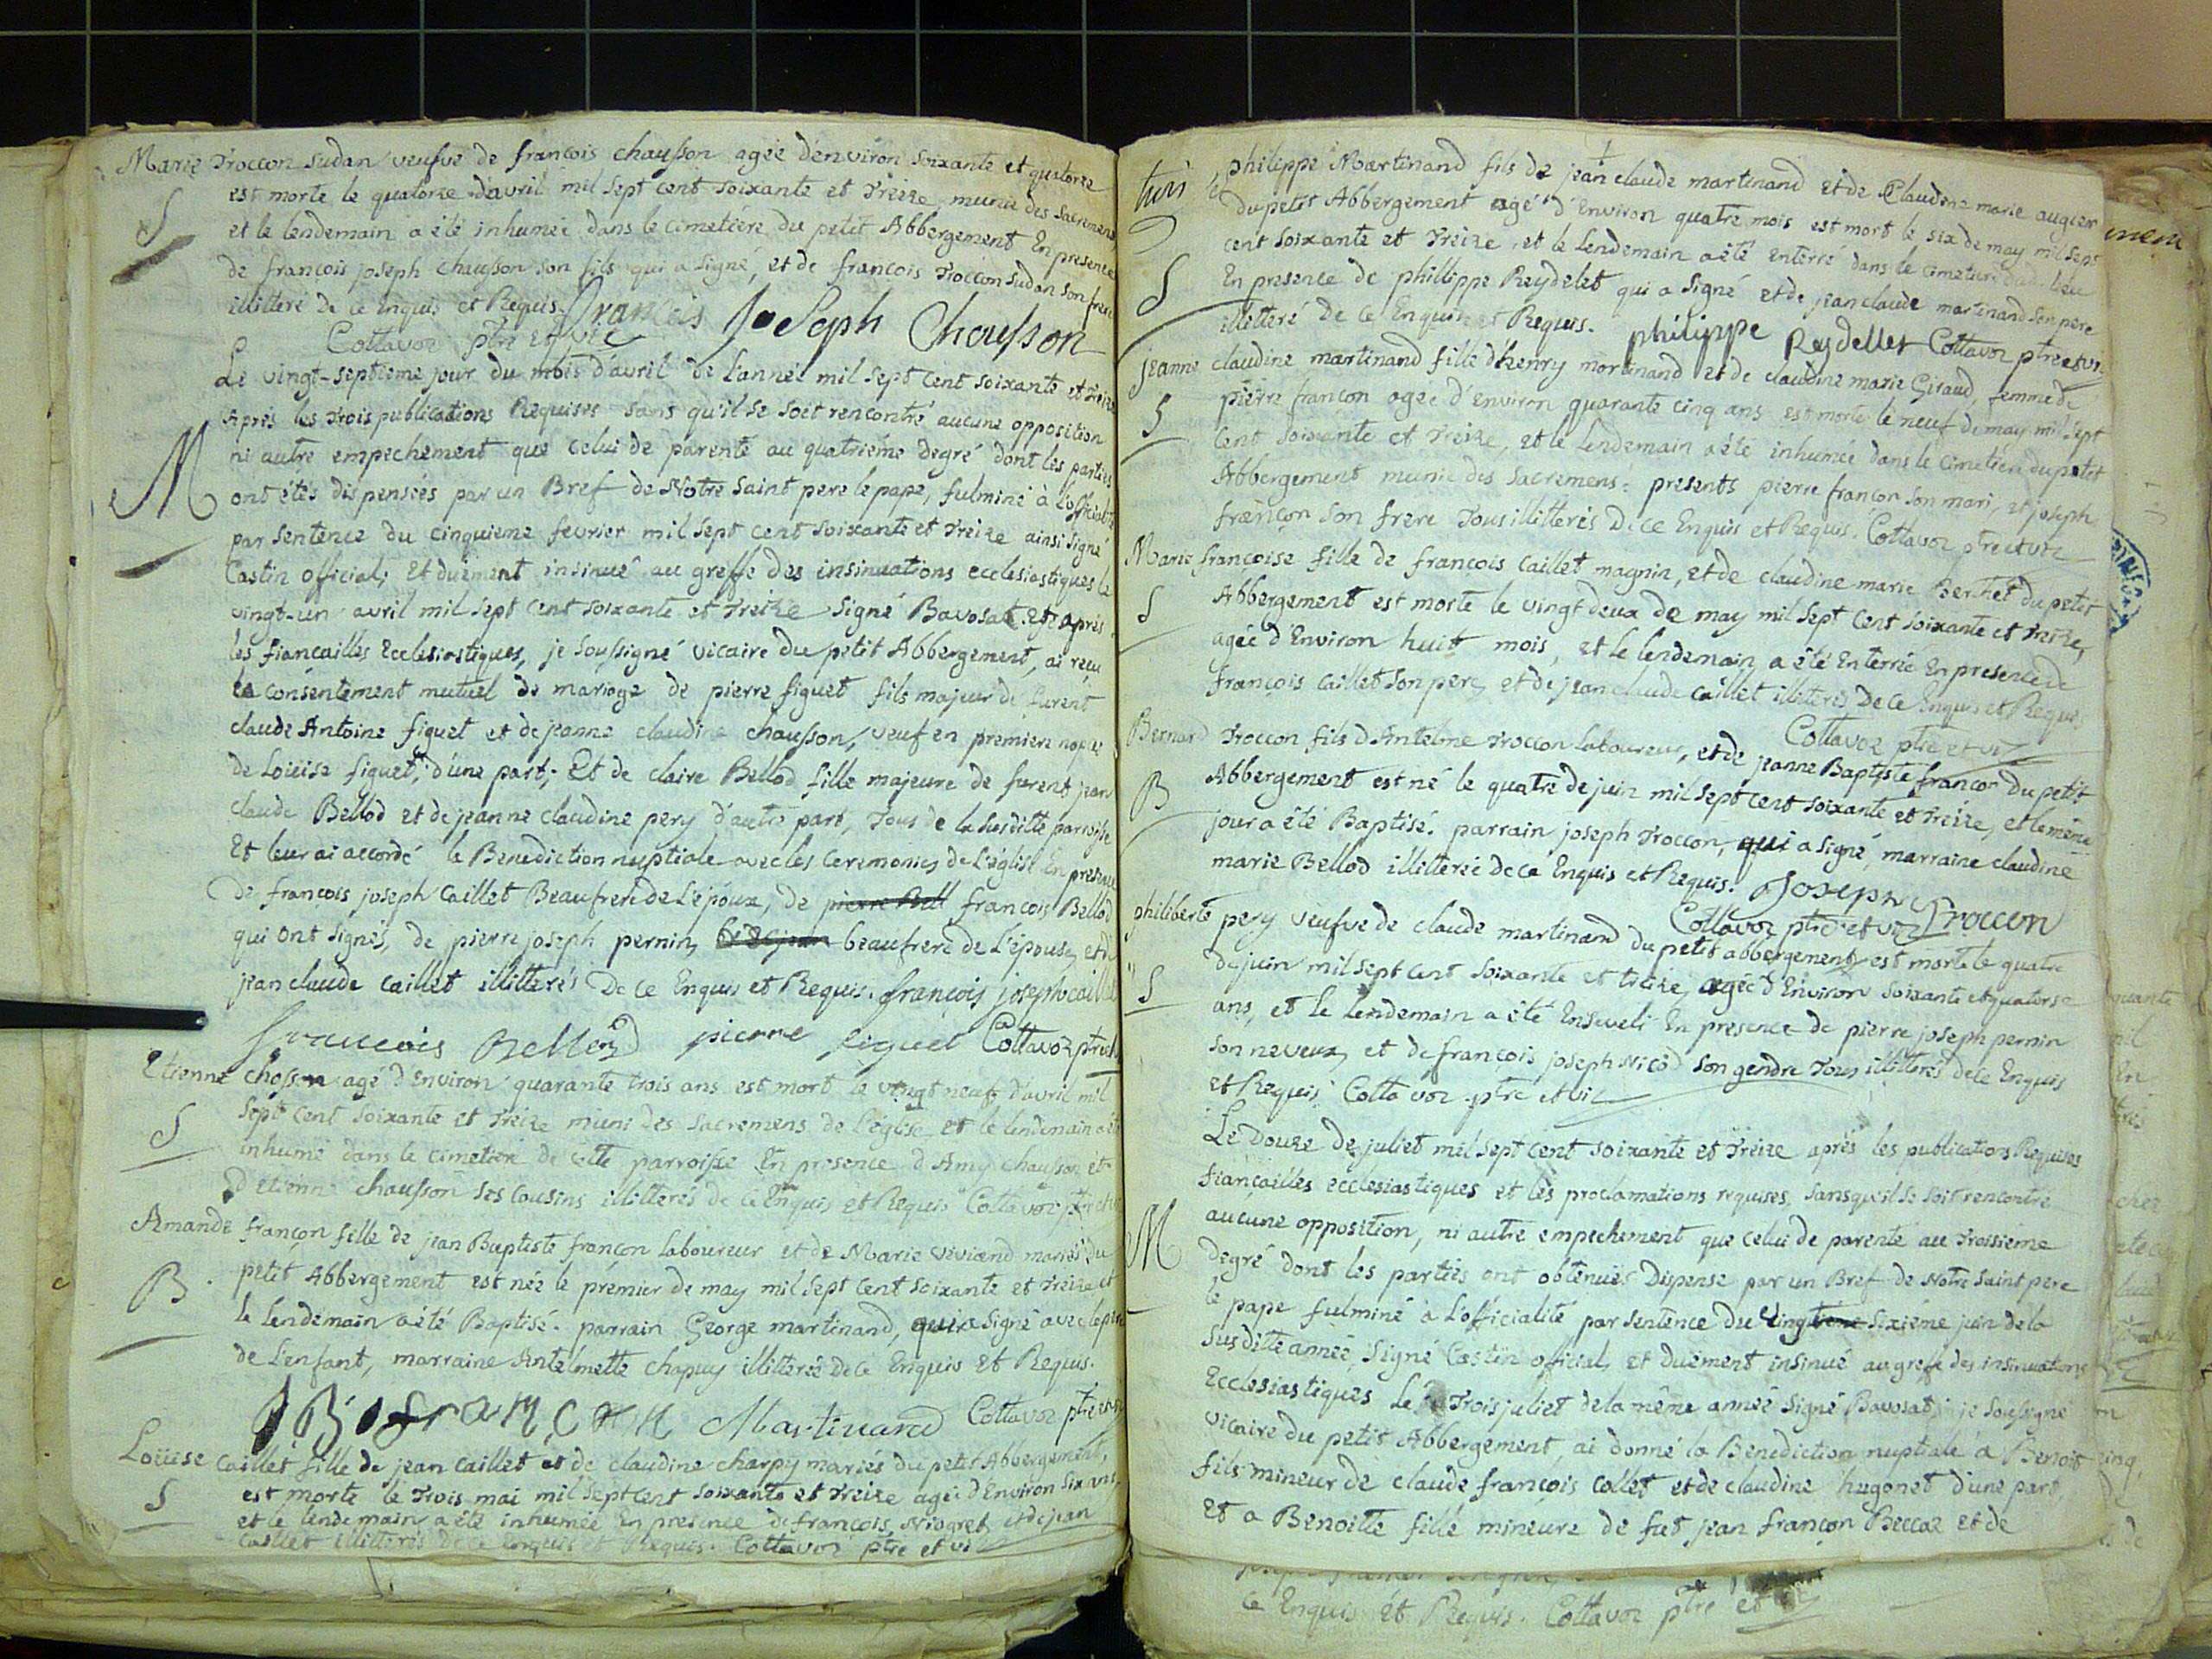 Marie Troccon Sudan veufve de françois chausson agée d'environ soixante et quatorze
est morte le quatorze d'avril mil sept cent soixante et treize, munie des sacremens
S
et le lendemain a été inhumée dans le cimetière du petit Abbergement En presence
de françois joseph chausson son fils qui a signé, et de françois Troccon Sudan son frere
illitteré De ce Enquis et Requis. François JoSeph Chousson
Cottavoz ptre et vic
Le vingt-septieme jour du mois d'avril de l'année mil sept cent soixante et treize
Après les trois publications Requises sans qu'il se soit rencontré aucune opposition
ni autre empechement que celui de parenté au quatrième degré dont les parties
M
ont étés dispensées par un Bref de Notre saint pere le pape, fulminé à L'officialité
par sentence du cinquieme fevrier mil sept cent soixante et treize ainsi signé
Castin official, et duëment insinué au greffe des insinuations ecclesiastiques le
vingt-un avril mil sept cent soixante et treize signé Bavosat. Et après
les fiancailles Ecclesiastiques, je soussigné vicaire du petit Abbergement, ai reçu
le consentement mutuel de mariage de pierre figuet fils majeur de furent
claude Antoine figuet et de jeanne claudine chausson, veuf en premiere nopce
de Loüise figuet, d'une part; Et de claire Bellod fille majeure de furent jean
claude Bellod et de jeanne claudine pery d'autre part, Tous de la susditte parroisse
Et leur ai accordé la Benediction nuptiale avec les ceremonies de L'église En presence
de francois joseph caillet Beaufrere de L'époux, de pierre Bell francois Bellod
qui ont signés, de pierre joseph pernin, et de jean beaufrere de L'épouse, et de
jean claude caillet illitterés De ce Enquis et Requis. françois joseph caillet
francois Bellod pierre figuet Cottavoz ptre et
Etienne chosson agé d'Environ quarante trois ans est mort le vingt neuf d'avril mil
sept cent soixante et treize muni des sacremens de L'église, et le lendemain a été
S
inhumé dans le cimetiere de cette parroisse En presence d'Amy chausson et
d'etienne chausson ses cousins illitterés de ce Enquis et Requis Cottavoz ptre et vic
Amande françon fille de jean Baptiste françon Laboureur et de Marie viviand mariés du
petit Abbergement est née le premier de may mil sept cent soixante et treize et
B.
le lendemain a été Baptisé. parrain George martinand, qui a signé avec le pere
de L'enfant, marraine Antelmette chapuy illitterée de ce Enquis et Requis.
J B françon Martinand Cottavoz ptre et vic
Loüise caillet fille de jean caillet et de claudine charpy mariés du petit Abbergement,
est morte le trois mai mil sept cent soixante et treize agée d'Environ six ans
S
et le lendemain a été inhumée En presence de françois Niogret, et de jean
caillet illitterés de ce Enquis et Requis. Cottavoz ptre et vic
philippe Martinand fils de jean claude martinand et de Claudine marie augier
du petit Abbergement agé d'Environ quatre mois est mort le six de may mil sept
cent soixante et treize, et le lendemain a été enterré dans le cimetiere dud. lieu
S
En presence de phillippe Reydelet qui a signé et de jean claude martinand son pere
illitteré De ce Enquis et Requis. philippe Reydellet Cottavoz ptre et vic
jeanne claudine martinand fille d'henry martinand et de claudine marie Giraud, femme de
pierre francon agée d'Environ quarante cinq ans est morte le neuf de may mil sept
S
cent soixante et treize, et le lendemain a été inhumée dans le cimetiere du petit
Abbergement munie des Sacremens: presents pierre françon son mari, et joseph
françon son frere Tous illitterés De ce Enquis et Requis. Cottavoz ptre et vic
Marie françoise fille de françois caillet magnin, et de claudine marie Berthet du petit
Abbergement est morte le vingt deux de may mil sept cent soixante et treize,
S
agée d'Environ huit mois, et le lendemain a été enterrée En presence de
françois caillet son pere, et de jean claude caillet illitterés De ce Enquis et Requis
Cottavoz ptre et vic
Bernard Troccon fils d'Antelme Troccon Laboureur, et de jeanne Baptiste françon Du petit
Abbergement est né le quatre de juin mil sept cent soixante et treize, et le même
B
jour a été Baptisé. parrain joseph Troccon, qui a signé, marraine claudine
marie Bellod illitterée de ce Enquis et Requis. Joseph Troccon
Cottavoz ptre et vic
philiberte pery veufve de claude martinand du petit abbergement est morte le quatre
de juin mil sept cent soixante et treize, agée d'Environ soixante et quatorze
S
ans, et le lendemain a été Enseveli En presence de pierre joseph pernin
son neveux, et de françois joseph Nicod son gendre Tous illitterés de ce Enquis
et Requis Cottavoz ptre et vic
Le Douze de juliet mil sept cent soixante et treize après les publications Requises
fiançailles ecclesiastiques et les proclamations requises, sans qu'il se soit rencontré
M
aucune opposition, ni autre empechement que celui de parenté au Troisieme
degré dont les parties ont obtenuës Dispense par un Bref de Notre saint pere
le pape fulminé à L'officialité par sentence du vingtième sixième juin de la
susditte année signé Castin official, et duëment insinué au greffe des insinuations
Ecclesiastiques Le Trois juliet de la même année signé Bavosat, je soussigné
vicaire du petit Abbergement, ai donné la Benediction nuptiale a Benoit
fils mineur de claude françois collet et de claudine hugonet d'une part,
et a Benoitte fille mineure de fut jean françon Beccaz et de
ce Enquis et Requis. Cottavoz ptre et vic